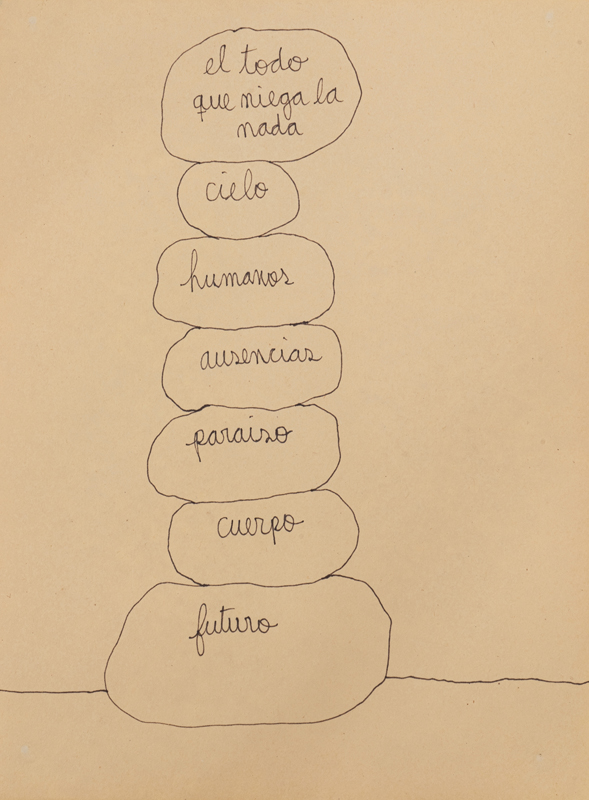 el todo
que niega la
nada
cielo
humanos
ausencias
paraiso
cuerpo
futuro